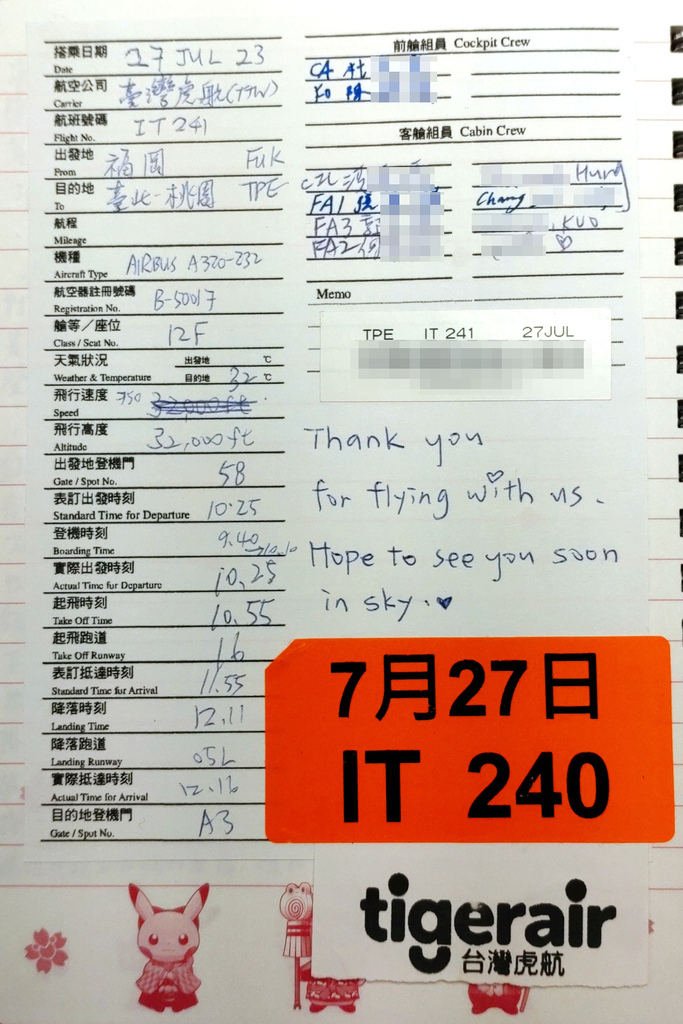 搭乘日期 Date 27 JUL 23
航空公司 Carrier 臺灣虎航(TTW)
航班號碼 Flight No. IT 241
出發地 From 福岡 FUK
目的地 To 臺北-桃園 TPE
航程 Mileage
機種 Aircraft Type AIRBUS A320-232
航空器註冊號碼 Registration No. B-50017
艙等／座位 Class / Seat No. 12F
天氣狀況 Weather & Temperature 出發地 ℃
目的地 32 ℃
飛行速度 Speed 750 32,000ft
飛行高度 Altitude 32,000ft
出發地登機門 Gate / Spot No. 58
表訂出發時刻 Standard Time for Departure 10:25
登機時刻 Boarding Time 9.40→10.10
實際出發時刻 Actual Time for Departure 10.25
起飛時刻 Take Off Time 10.55
起飛跑道 Take Off Runway 16
表訂抵達時刻 Standard Time for Arrival 11.55
降落時刻 Landing Time 12.11
降落跑道 Landing Runway 05L
實際抵達時刻 Actual Time for Arrival 12.16
目的地登機門 Gate / Spot No. A3
前艙組員 Cockpit Crew
CA 杜
FO
客艙組員 Cabin Crew
Hung
FA1 Chang
FA3 KUO
FA2 何
Memo
TPE IT 241 27JUL
Thank you
for flying with us.
Hope to see you soon
in sky.
7月27日
IT 240
tigerair
台灣虎航